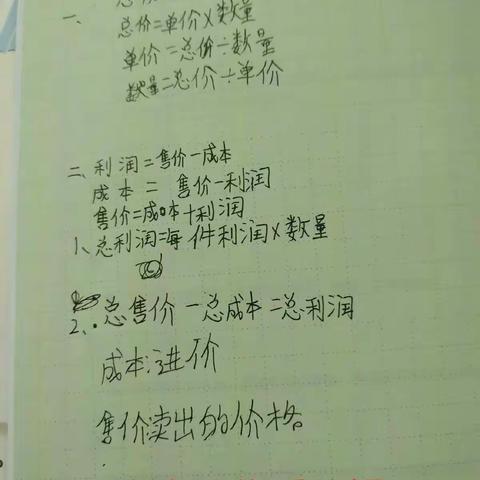 一、
总价=单价×数量
单价=总价÷数量
数量=总价÷单价
二、利润=售价-成本
成本=售价-利润
售价=成本+利润
1、总利润=每件利润×数量
2、·总售价-总成本=总利润
成本:进价
售价卖出的价格